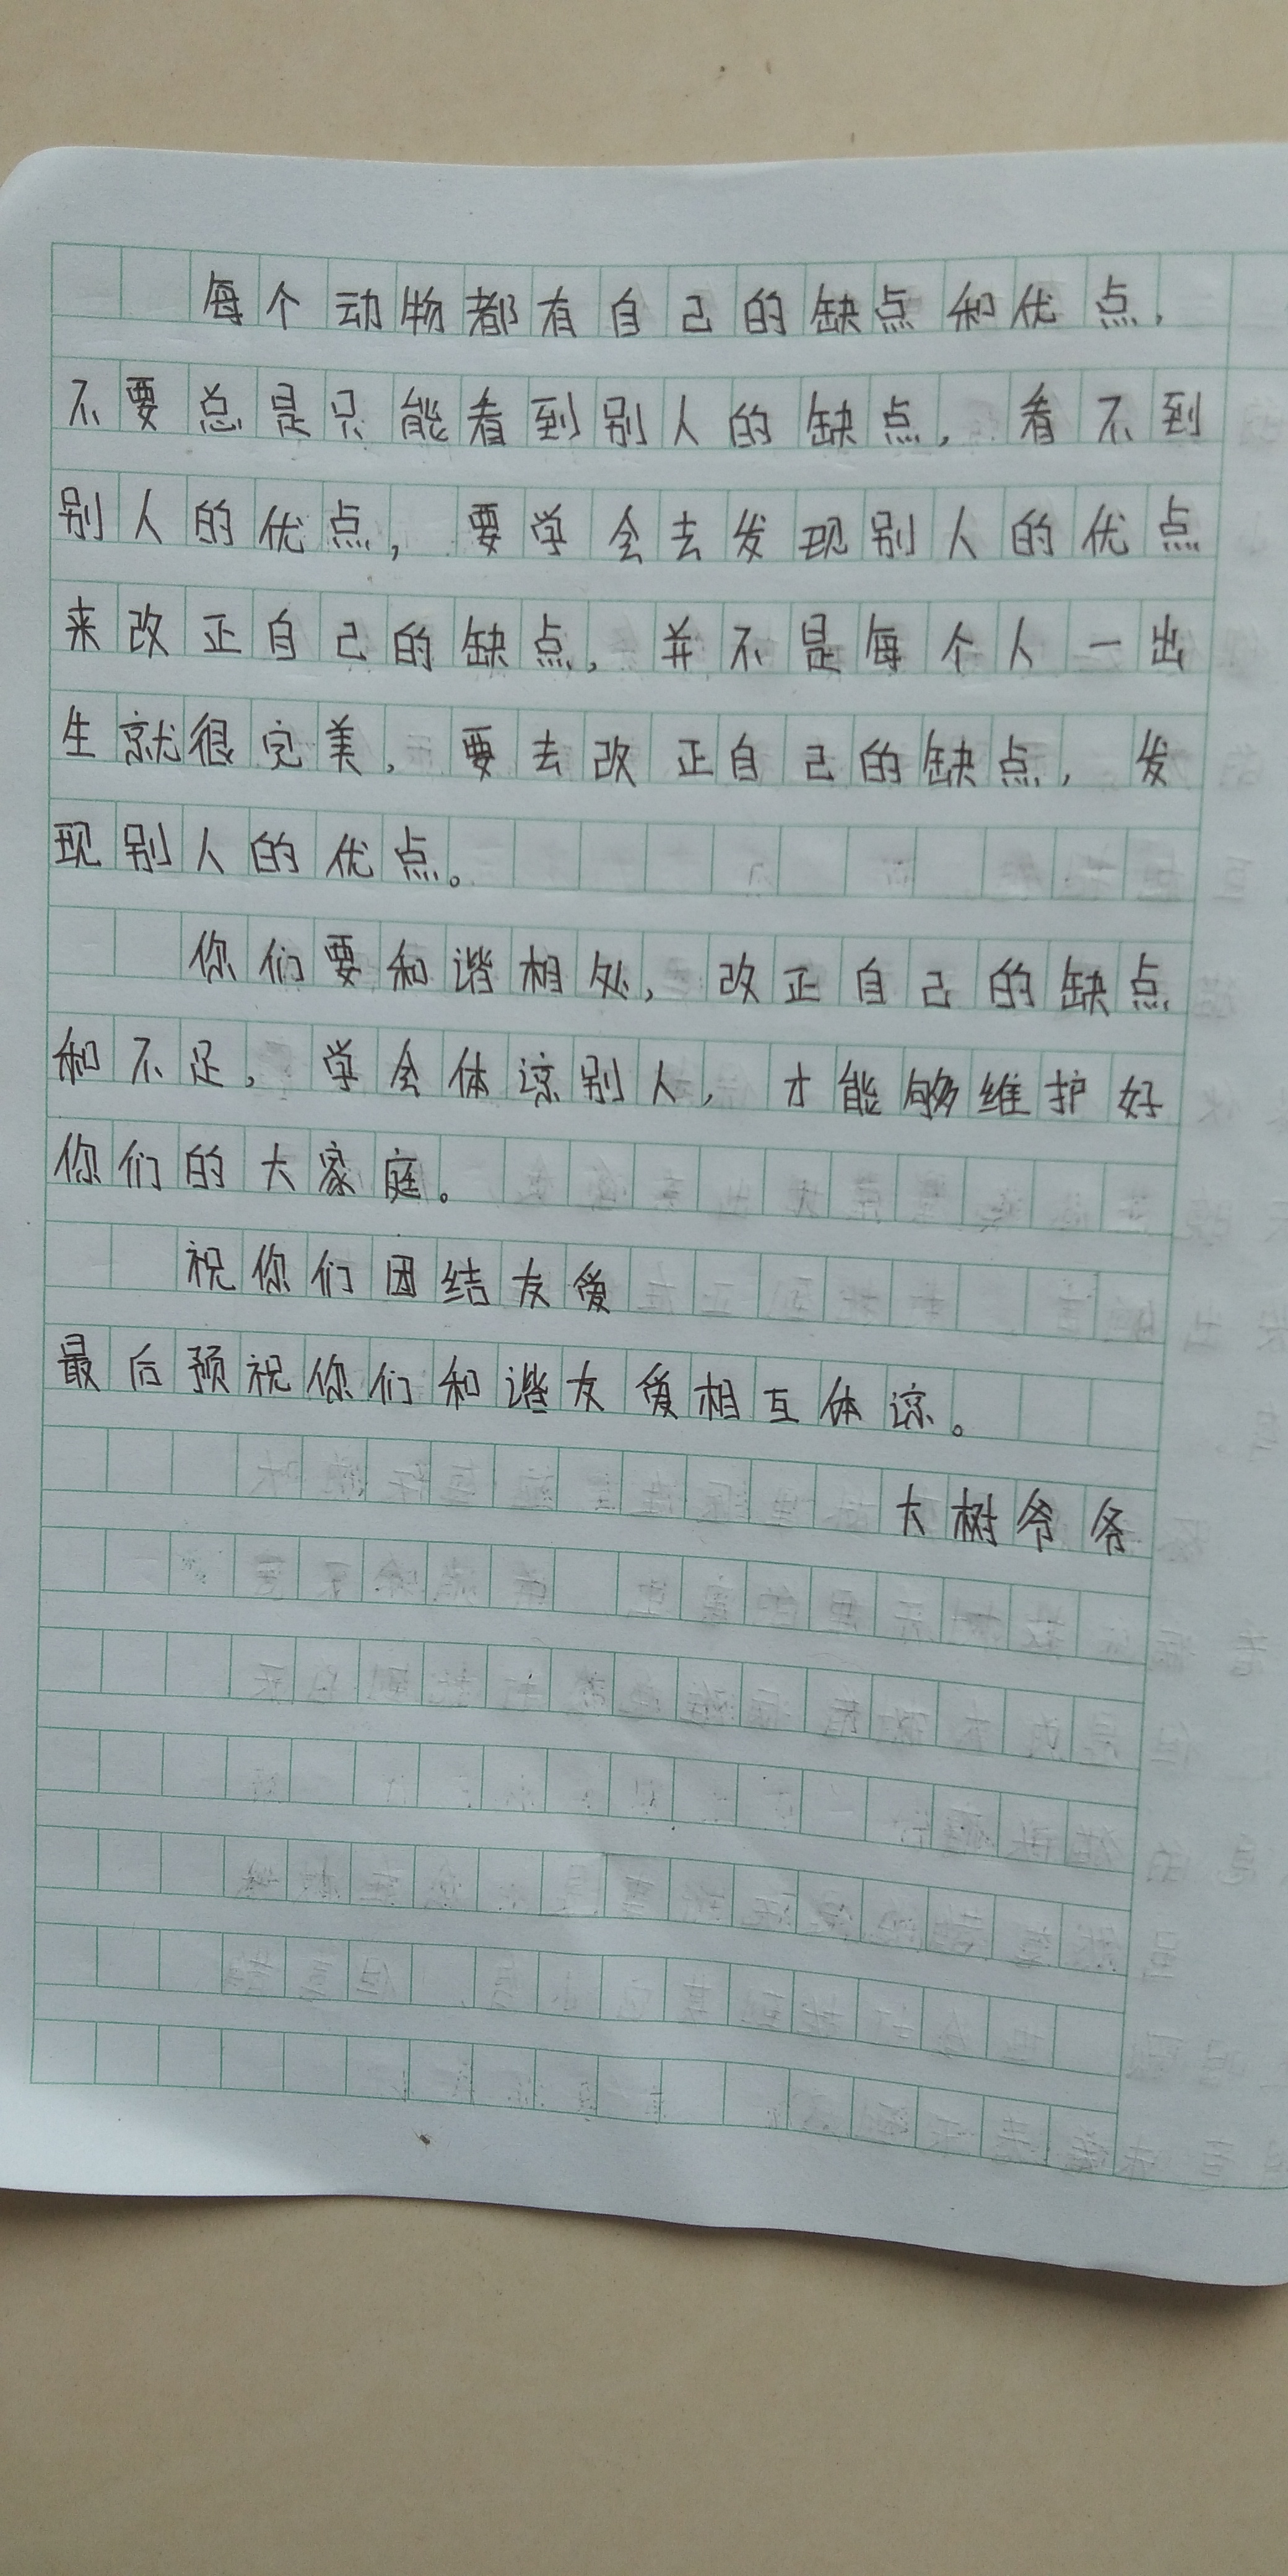 每个动物都有自己的缺点和优点,
不要总是只能看到别人的缺点,看不到
别人的优点,要学会去发现别人的优点
来改正自己的缺点,并不是每个人一出
生就很完美,要去改正自己的缺点,发
现别人的优点。
你们要和谐相处,改正自己的缺点
和不足,学会体谅别人,才能够维护好
你们的大家庭。
祝你们团结友爱
最后预祝你们和谐友爱相互体谅。
大树爷爷